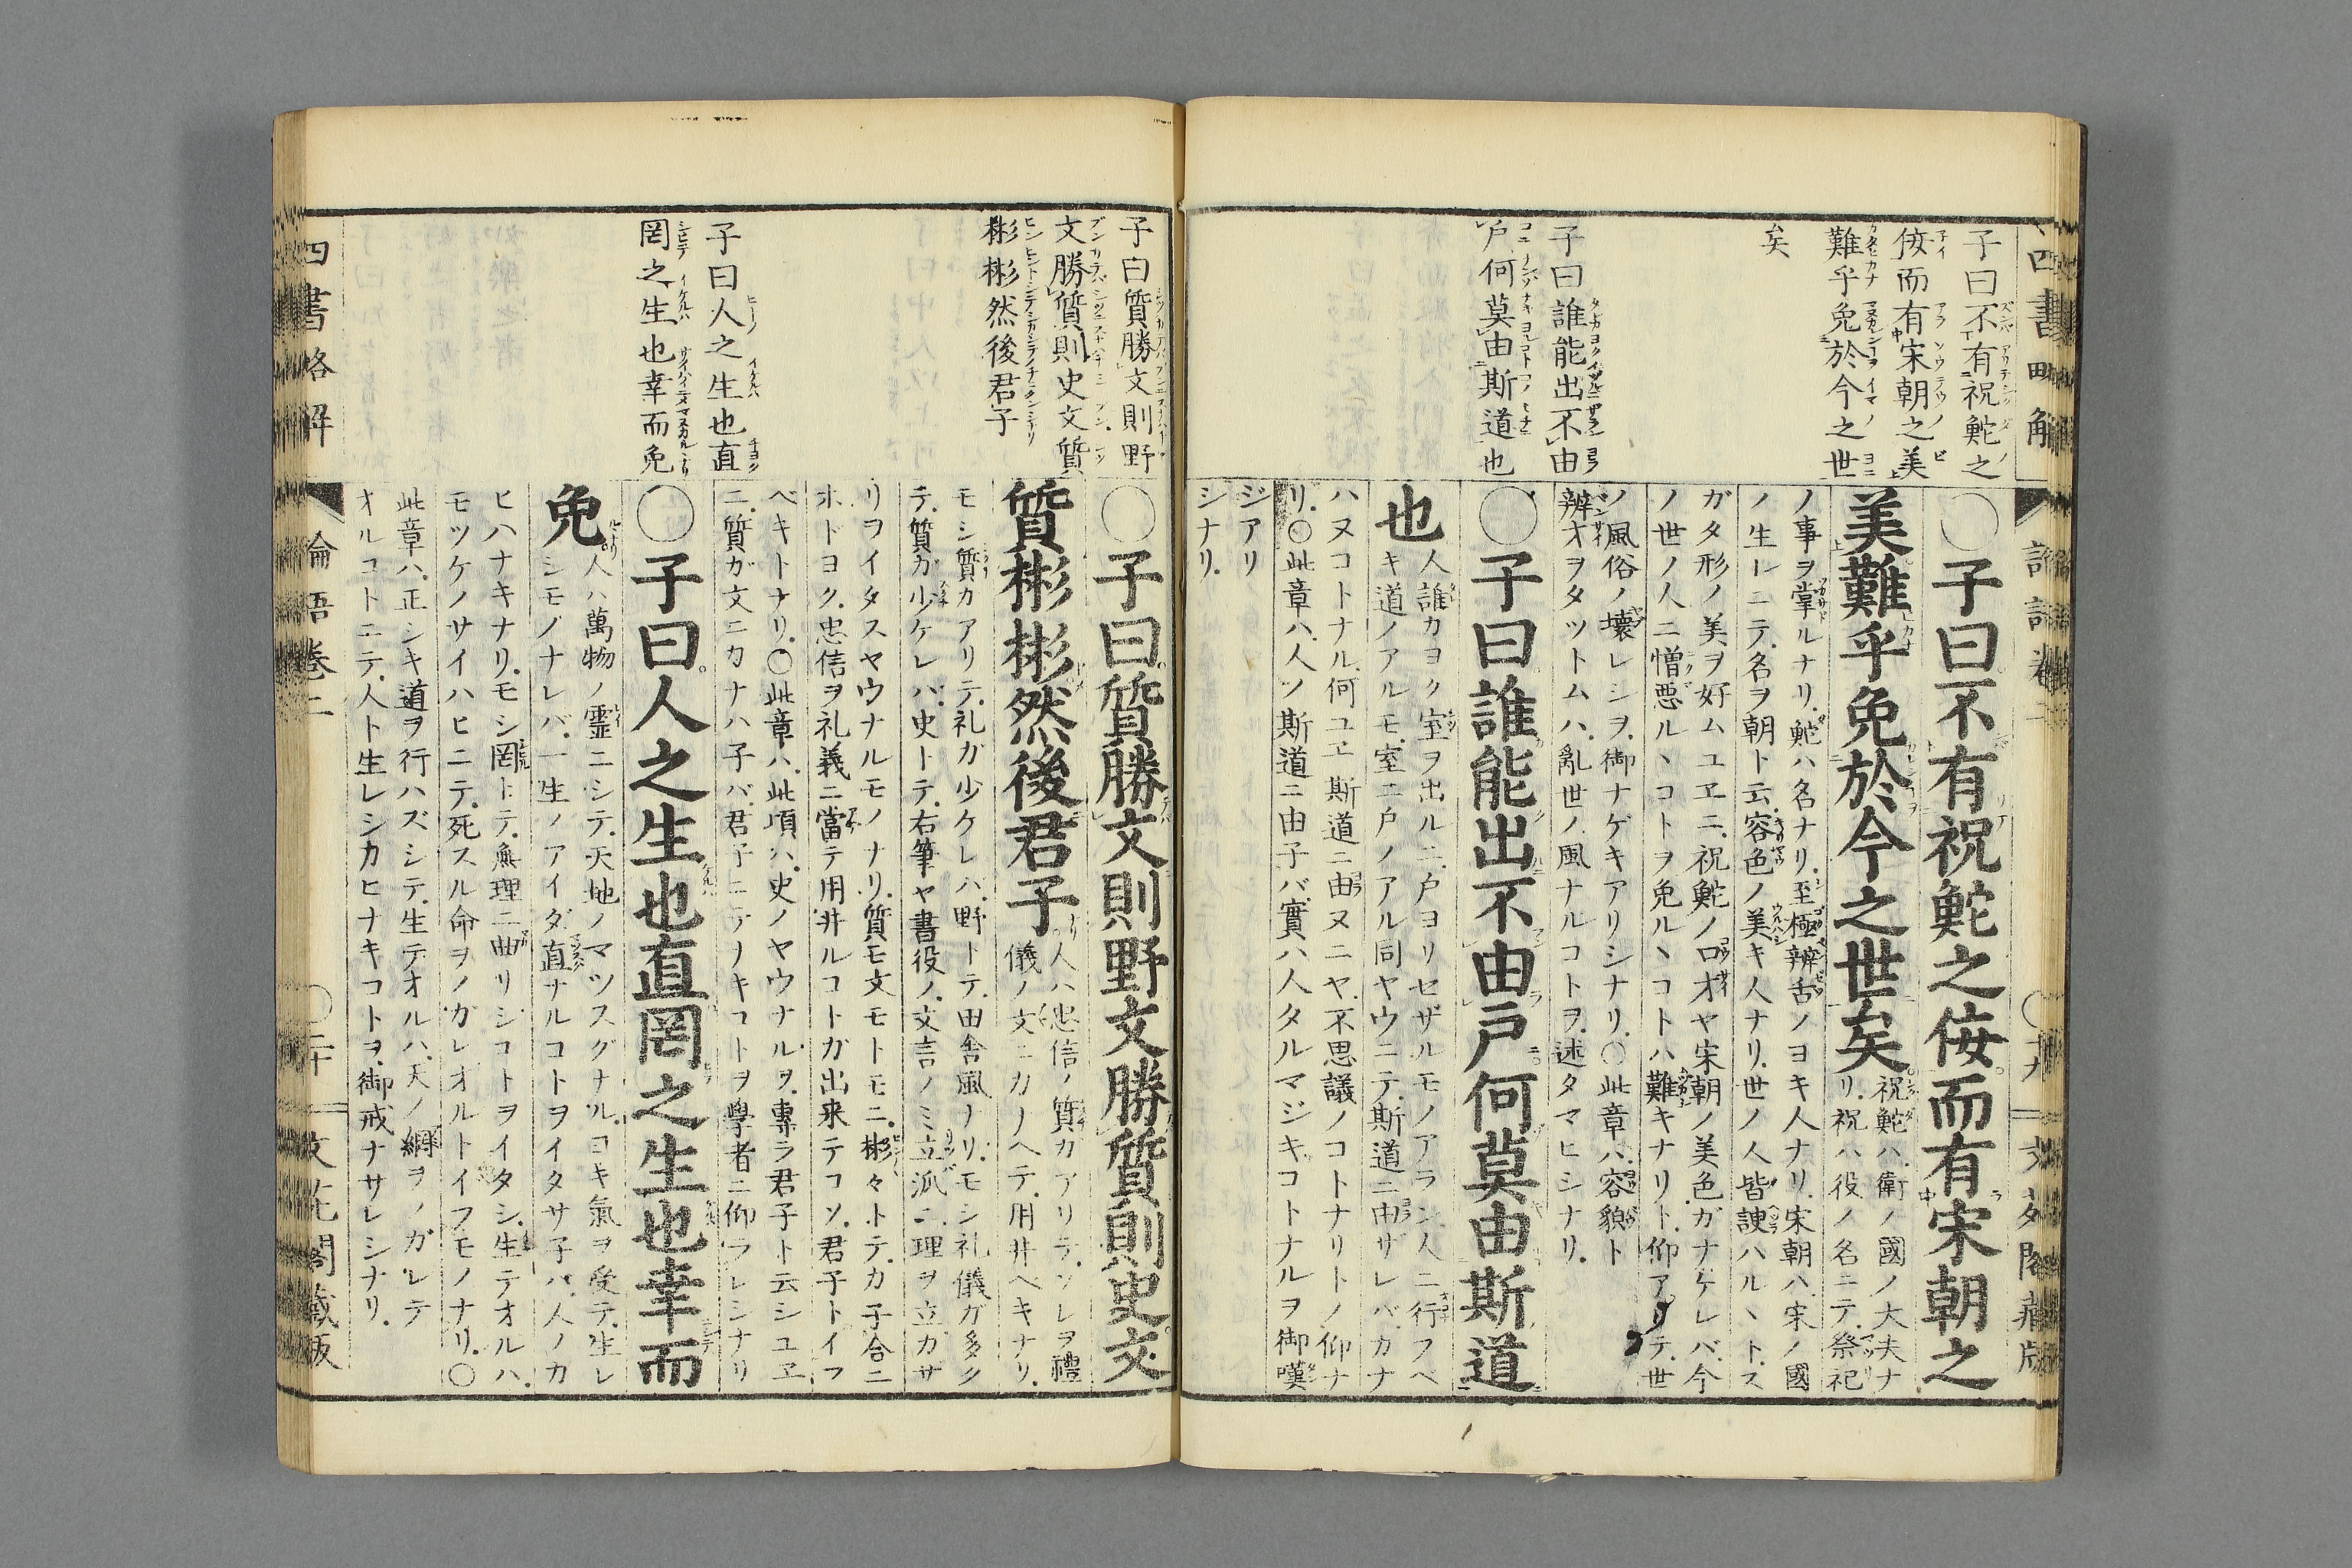 四書略解
子曰不有祝鮀之
侫而有宋朝之美
難乎免於今之世
矣
子曰誰能出不由
戶何莫由斯道也
○子曰不有祝鮀之侫而有宋朝之
美難乎免於今之世矣
祝鮀ハ衛ノ國ノ大夫ナ
リ祝ハ役ノ名ニテ祭祀
ノ事ヲ掌ルナリ鮀ハ名ナリ至極辨舌ノヨキ人ナリ宋朝ハ宋ノ國
ノ生レニテ名ヲ朝ト云容色ノ美キ人ナリ世ノ人皆諛ハルヽトス
ガタ形ノ美ヲ好ムユヱニ祝鮀ノ口才ヤ宋朝ノ美色ガナケレバ今
ノ世ノ人ニ憎悪ルヽコトヲ免ルヽコトハ難キナリト仰アリテ世
ノ風俗ノ壞レシヲ御ナゲキアリシナリ○此章ハ容貌ト
辨才ヲタツトムハ亂世ノ風ナルコトヲ述タマヒシナリ
○子曰誰能出不由戶何莫由斯道
也
人誰カヨク室ヲ出ルニ戶ヨリセザルモノアラン人ニ行フベ
キ道ノアルモ室ニ戶ノアル同ヤウニテ斯道ニ由ザレバカナ
ハヌコトナル何ユヱ斯道ニ由ヌニヤ不思議ノコトナリトノ仰ナ
リ○此章ハ人ノ斯道ニ由子バ實ハ人タルマジキコトナルヲ御嘆
ジアリ
シナリ
子曰質勝文則野
文勝質則史文質
彬彬然後君子
子曰人之生也直
罔之生也幸而免
○子曰質勝文則野文勝質則史文
質彬彬然後君子
人ハ忠信ノ質カアリテソレヲ禮
儀ノ文ニカノヘテ用井ベキナリ
モシ質カアリテ礼ガ少ケレハ野トテ田舎風ナリモシ礼儀ガ多ク
テ質カ少ケレバ史トテ右筆ヤ書役ノ文言ノミ立派ニ理ヲ立カザ
リヲイタスヤウナルモノナリ質モ文モトモニ彬々トテカ子合ニ
ホドヨク忠信ヲ礼義ニ當テ用井ルコトガ出来テコソ君子トイフ
ベキトナリ○此章ハ此頃ハ史ノヤウナルヲ專ラ君子ト云シユヱ
ニ質ガ文ニカナハ子バ君子ニテノキコトヲ學者ニ仰ラレシナリ
○子曰人之生也直罔之生也幸而
免
人ハ萬物ノ靈ニシテ天地ノマツスグナルヨキ氣ヲ受テ生レ
シモノナレバ一生ノアイダ直ナルコトヲイタサ子バ人ノカ
ヒハナキナリモシ罔トテ無理ニ曲リシコトヲイタシ生テオルハ
モツケノサイハヒニテ死スル命ヲノガレオルトイフモノナリ○
此章ハ正シキ道ヲ行ハズシテ生テオルハ天ノ網ヲノガレテ
オルコトニテ人ト生レシカヒナキコトヲ御戒ナサレシナリ
四書略解
論語卷二
○二十
文花閣藏版